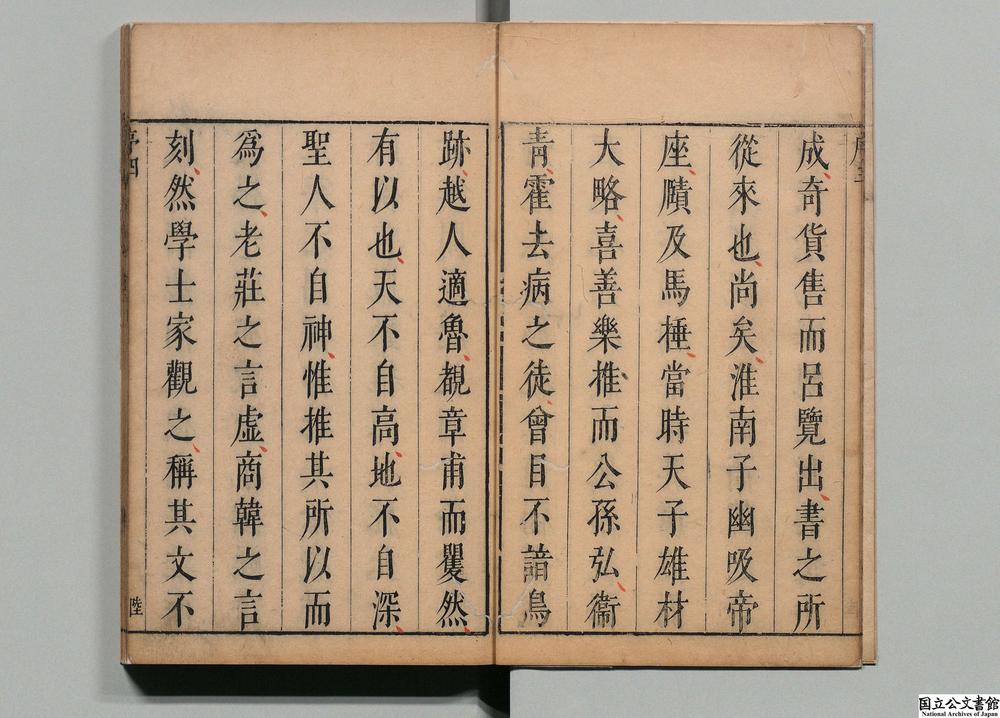 序三
成奇貨售而呂覽出書之所
從來也尚矣淮南子幽吸帝
座賾及馬棰當時天子雄材
大略喜善樂推而公孫弘衞
青霍去病之徒曾目不諳鳥
跡越人適魯覩章甫而矍然
有以也天不自高地不自深
聖人不自神惟推其所以而
爲之老莊之言虛商韓之言
刻然學士家觀之稱其文不
序四
陸
国立公文書館
National Archives of Japan